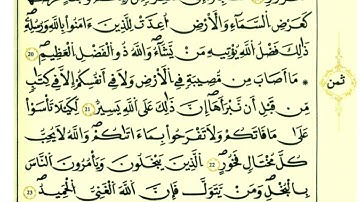 كَعَرْضِ السَّمَآءِ وَالْأَرْضِ أُعِدَّتْ لِلَّذِينَ ءَامَنُوا بِاللَّهِ وَرُسُلِهِ
ذَٰلِكَ فَضْلُ اللَّهِ يُؤْتِيهِ مَنْ يَشَآءُ وَاللَّهُ ذُو الْفَضْلِ الْعَظِيمِ 20
ثمن
* مَآ أَصَابَ مِن مُّصِيبَةٍ فِي الْأَرْضِ وَلَا فِي أَنفُسِكُمْ إِلَّا فِي كِتَٰبٍ
مِّن قَبْلِ أَن نَّبْرَأَهَآ إِنَّ ذَٰلِكَ عَلَى اللَّهِ يَسِيرٌ 21 لِّكَيْلَا تَأْسَوْا
عَلَىٰ مَا فَاتَكُمْ وَلَا تَفْرَحُوا بِمَآ ءَاتَىٰكُمْ وَاللَّهُ لَا يُحِبُّ
كُلَّ مُخْتَالٍ فَخُورٍ 22 الَّذِينَ يَبْخَلُونَ وَيَأْمُرُونَ النَّاسَ
بِالْبُخْلِ وَمَن يَتَوَلَّ فَإِنَّ اللَّهَ الْغَنِيُّ الْحَمِيدُ 23